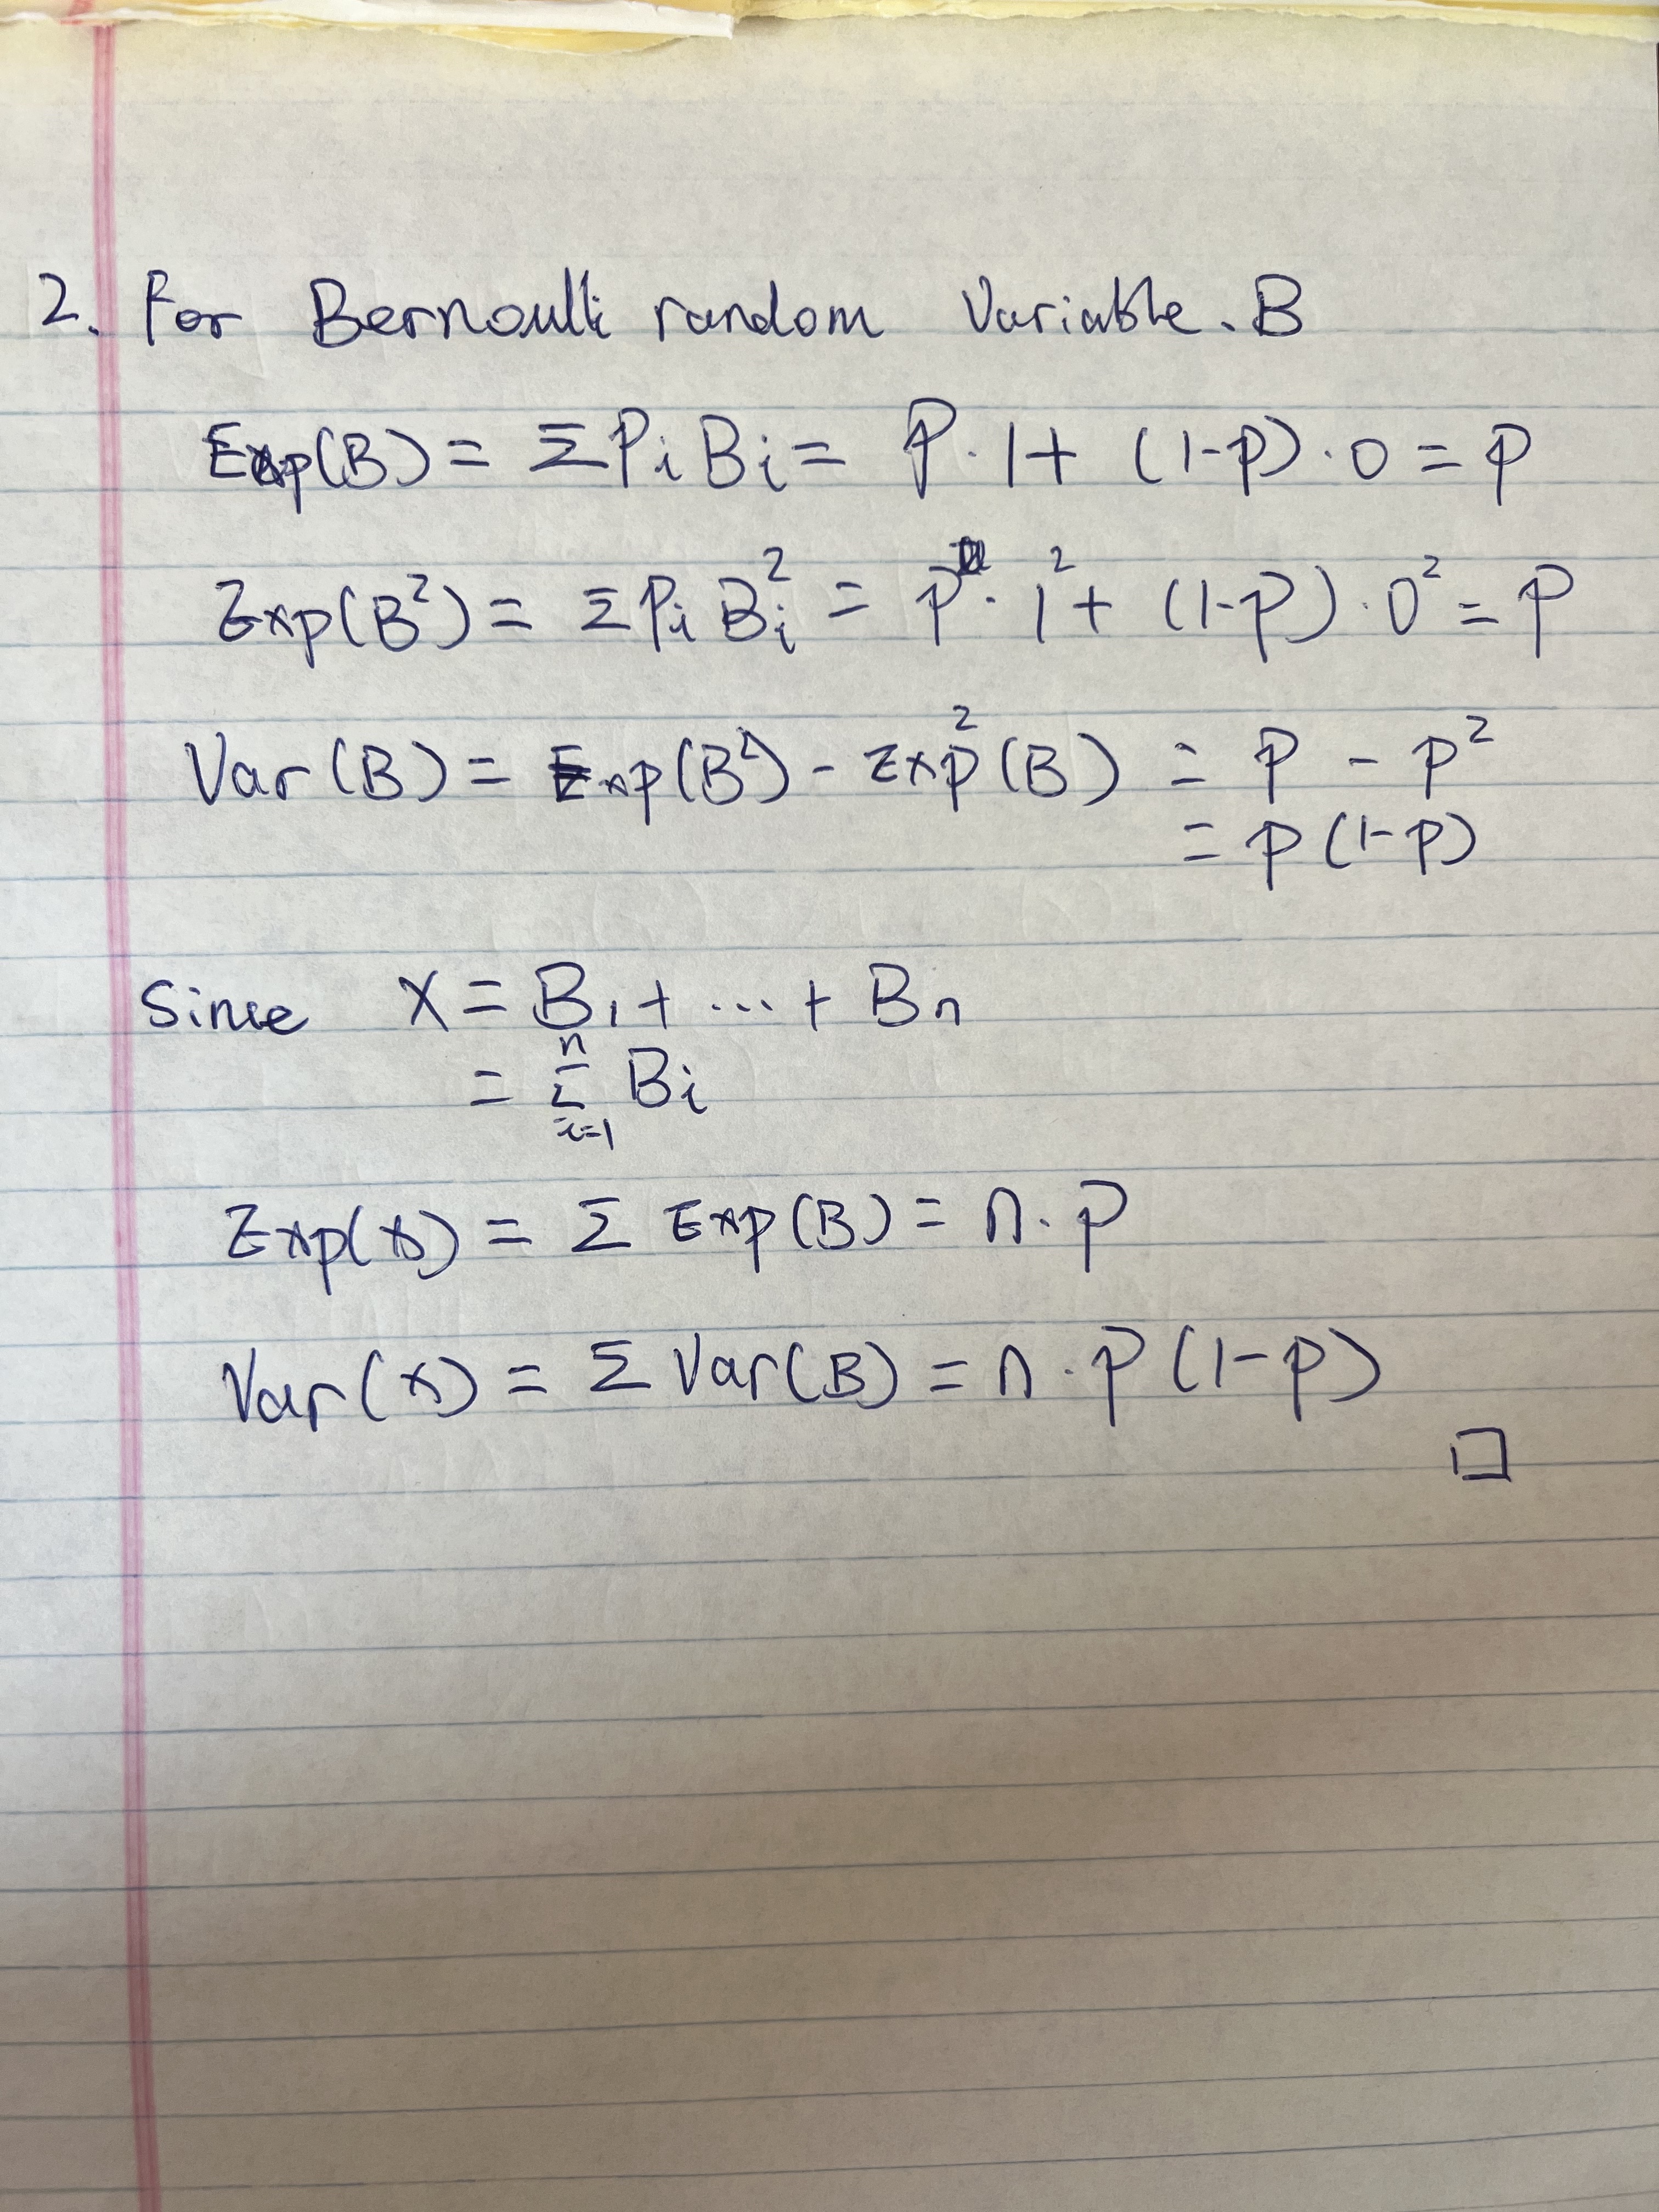 2. For Bernoulli random Variable. B
Exp(B) = ΣPiBi = P·1 + (1-p)·0 = p
Exp(B²) = ΣPiBi² = p·1² + (1-p)·0² = p
Var(B) = Exp(B²) - Exp²(B) = p - p²
= p(1-p)
Since X = B₁ + ... + Bn
= Σⁿᵢ₌₁ Bi
Exp(X) = Σ Exp(B) = n·p
Var(X) = Σ Var(B) = n·p(1-p)
□